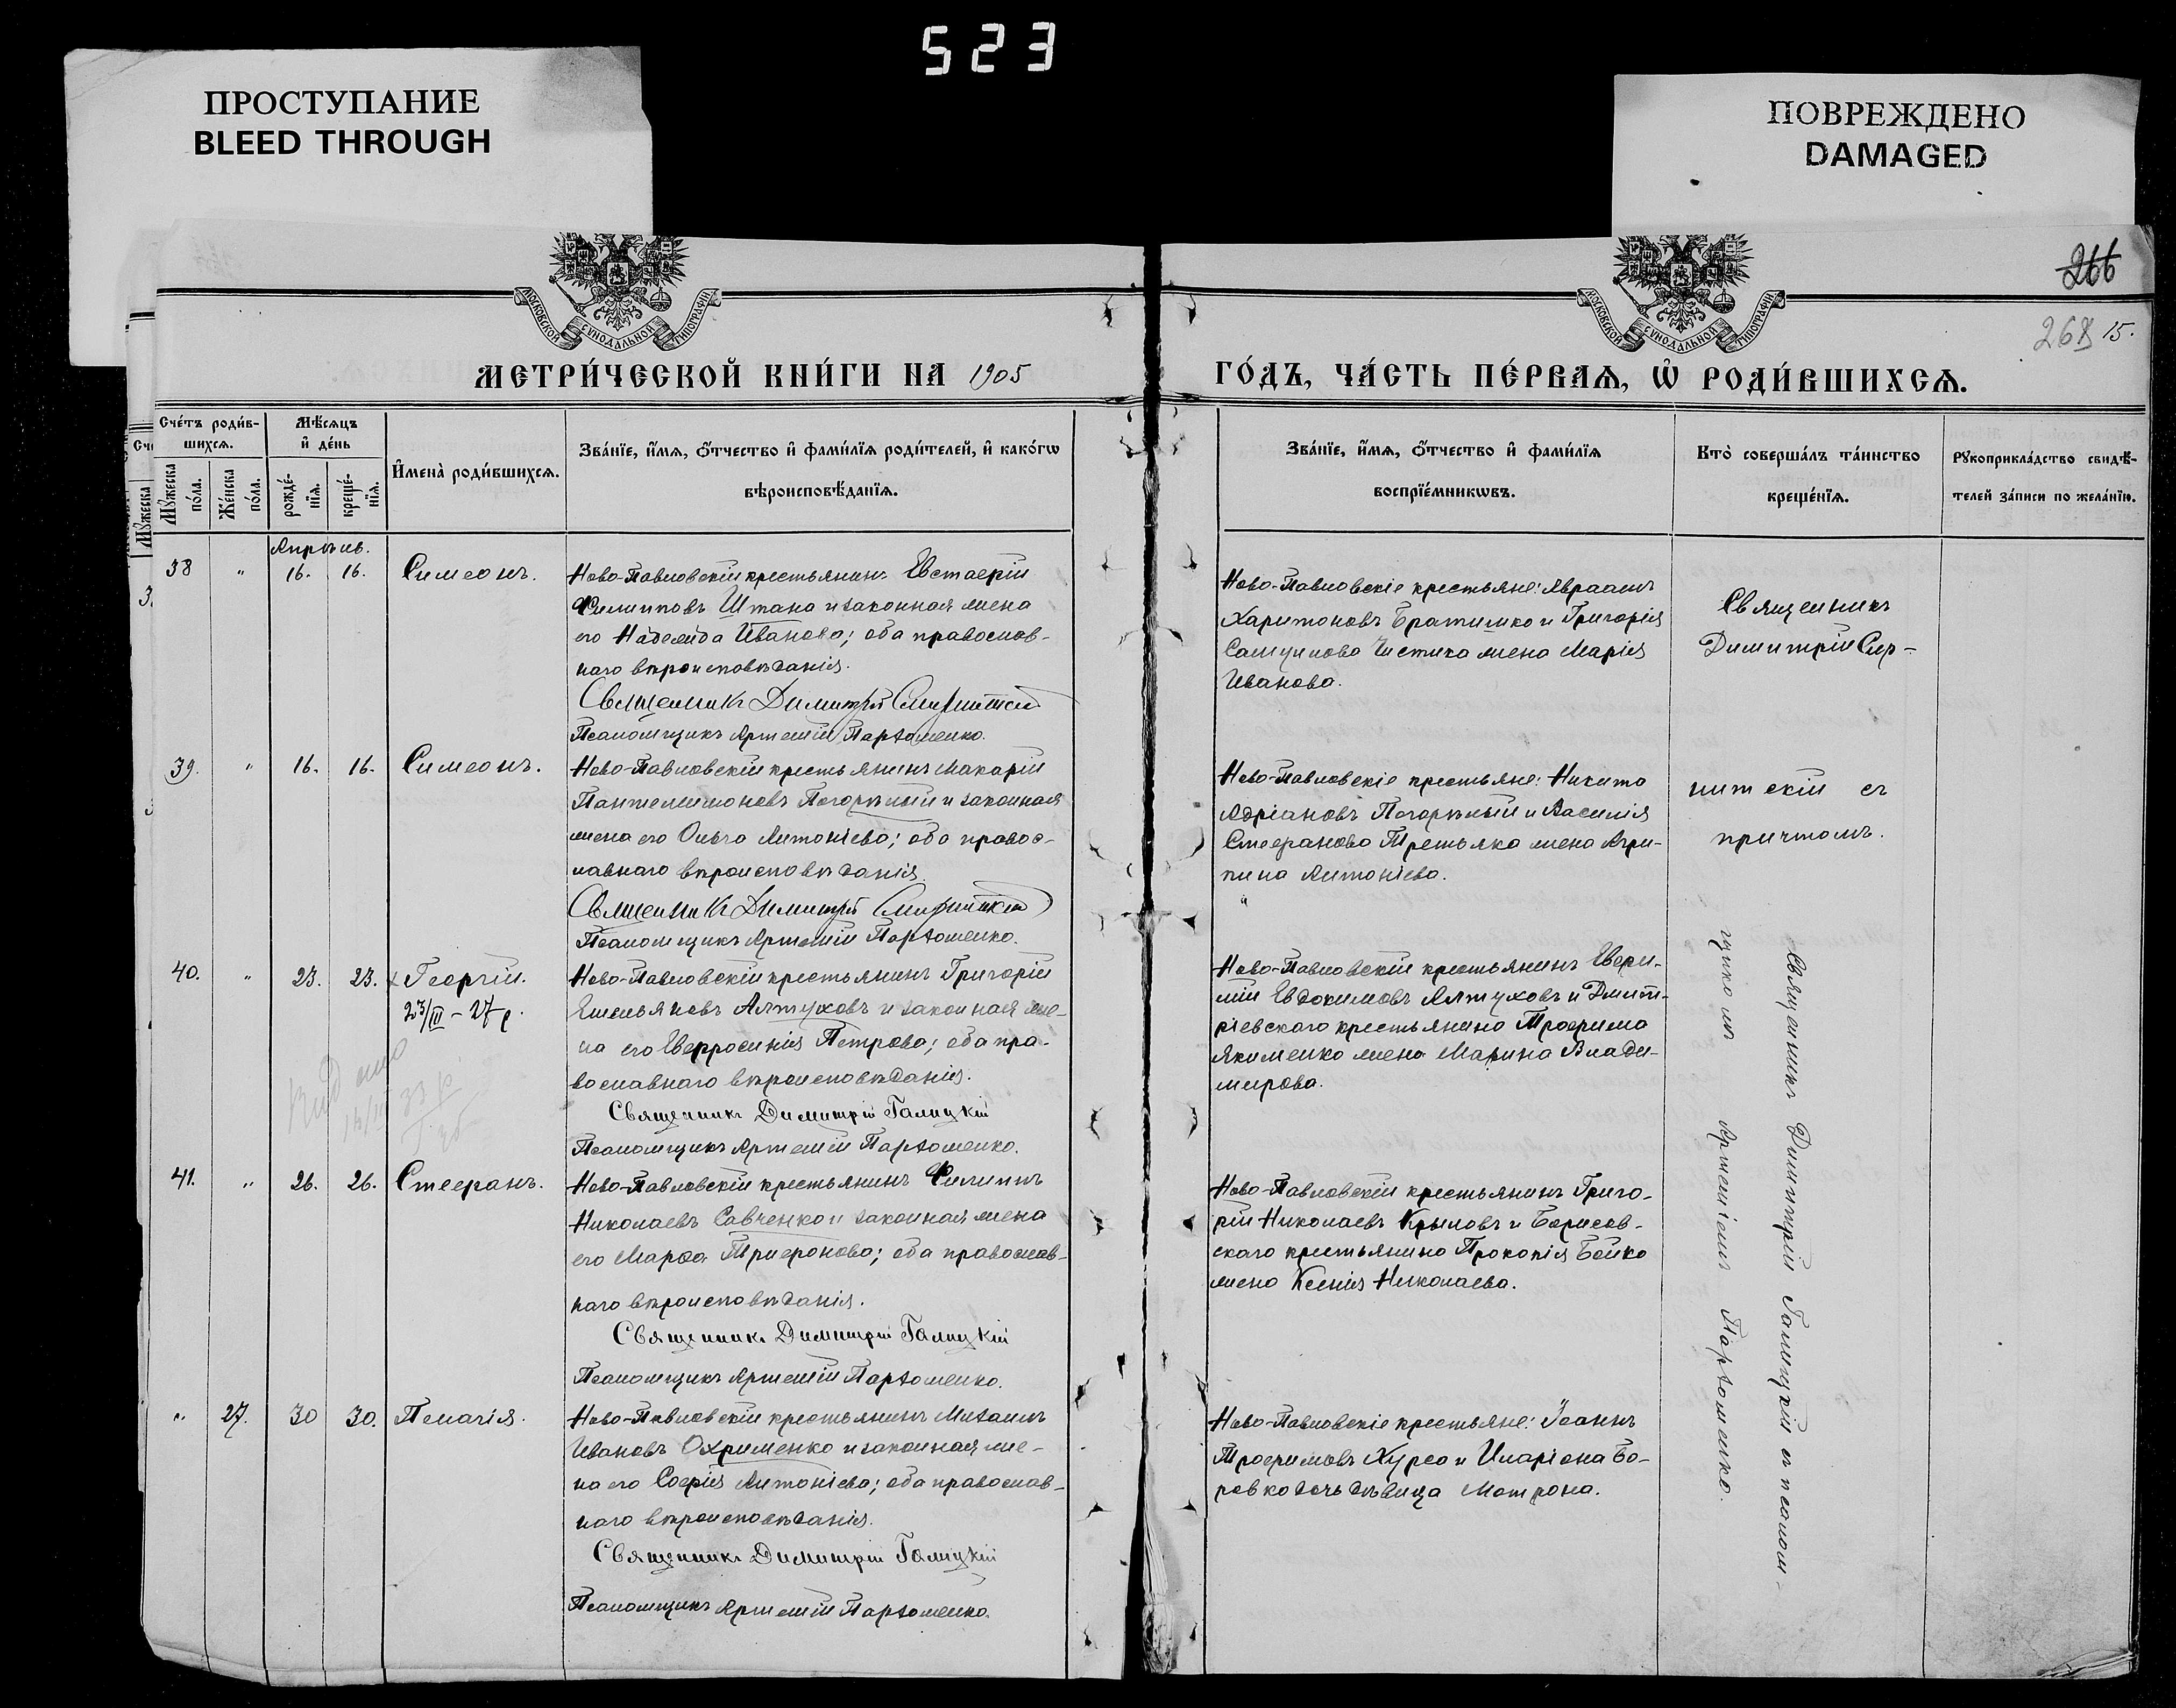 523
ПРОСТУПАНИЕ
BLEED THROUGH
ПОВРЕЖДЕНО
DAMAGED
266
268 15.
МОСКОВСКОЙ СУНОДАЛЬНОЙ ТИПОГРАФІИ
МОСКОВСКОЙ СУНОДАЛЬНОЙ ТИПОГРАФІИ
МЕТРИ́ЧЕСКОЙ КНИ́ГИ НА 1905
ГО́ДЪ, ЧА́СТЬ ПЕ́РВАѦ, Ѡ҆ РОДИ́ВШИХСѦ.
Сче́тъ роди́в-
шихсѧ.
Мꙋ́жеска
по́ла.
Же́нска
по́ла.
Мѣ́сѧцъ
и҆ де́нь
рожде́-
нїѧ.
креще́-
нїѧ.
И҆мена̀ роди́вшихсѧ.
Зва́нїе, и҆́мѧ, ѻ҆́тчество и҆ фами́лїѧ роди́телей, и҆ како́гѡ
вѣроисповѣ́данїѧ.
Зва́нїе, и҆́мѧ, ѻ҆́тчество и҆ фами́лїѧ
воспрїе́мникѡвъ.
Кто̀ соверша́лъ та́инство
креще́нїѧ.
Рꙋкоприкла́дство свидѣ́-
телей за́писи по жела́нїю.
Апрѣль.
38 " 16. 16. Симеонъ.
Ново-Павловскій крестьянинъ Евстафій
Филипповъ Штана и законная жена
его Надежда Иванова; оба православ-
наго вѣроисповѣданія.
Священникъ Димитрій
Псаломщикъ Артемій Пархоменко.
Ново-Павловскіе крестьяне: Авраамъ
Харитоновъ Братишко и Григорія
Самуилова Чистика жена Марія
Иванова.
Священникъ
Димитрій
39. " 16. 16. Симеонъ.
Ново-Павловскій крестьянинъ Макарій
Пантелимоновъ Погорѣлый и законная
жена его Ольга Антоніева; оба правос-
лавнаго вѣроисповѣданія.
Священникъ Димитрій
Псаломщикъ Артемій Пархоменко.
Ново-Павловскіе крестьяне: Никита
Адріановъ Погорѣлый и Василія
Стефанова Третьяка жена Агри-
пина Антоніева.
"
нитскій съ
причтомъ.
40. " 23. 23. х Георгій.
23/III - 27 г.
Ново-Павловскій крестьянинъ Григорій
Емельяновъ Алтуховъ и законная же-
на его Евфросинія Петрова; оба пра-
вославнаго вѣроисповѣданія.
Священникъ Димитрій Галицкій
Псаломщикъ Артемій Пархоменко.
Ново-Павловскій крестьянинъ Ефи-
мій Евдокимовъ Алтуховъ и Дмит-
ріевскаго крестьянина Трофима
Якименко жена Марина Влади-
мирова.
Священникъ Димитрій Галицкій съ псалом-
щикомъ Артеміемъ Пархоменко.
41. " 26. 26. Стефанъ.
Ново-Павловскій крестьянинъ Филиппъ
Николаевъ Савченко и законная жена
его Марѳа Трифонова; оба православ-
наго вѣроисповѣданія.
Священникъ Димитрій Галицкій
Псаломщикъ Артемій Пархоменко.
Ново-Павловскій крестьянинъ Григо-
рій Николаевъ Крыловъ и Борисов-
скаго крестьянина Прокопія Бойко
жена Ксенія Николаева.
" 27. 30 30. Пелагія.
Ново-Павловскій крестьянинъ Михаилъ
Ивановъ Охрименко и законная же-
на его Софія Антоніева; оба православ-
наго вѣроисповѣданія.
Священникъ Димитрій Галицкій
Псаломщикъ Артемій Пархоменко.
Ново-Павловскіе крестьяне: Іоаннъ
Трофимовъ Хурса и Иларіона Бо-
ровко дочь дѣвица Матрона.